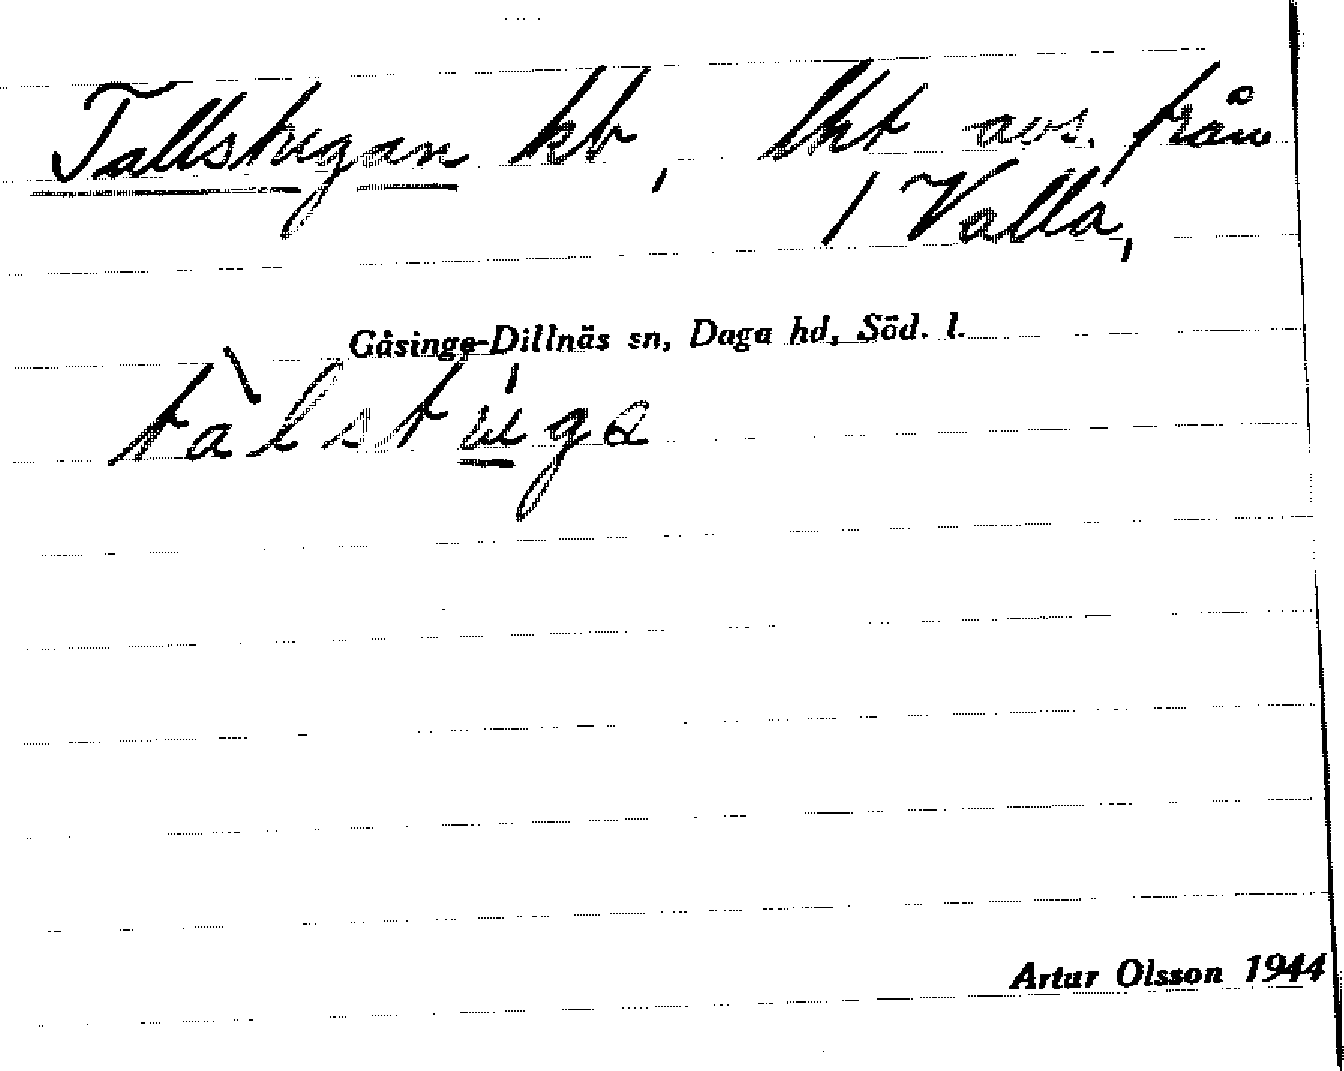 Tallstugan kb, lht avs. från
/ Valla,
Gåsinge-Dillnäs sn, Daga hd, Söd. l.
tàlstúga
Artur Olsson 1944